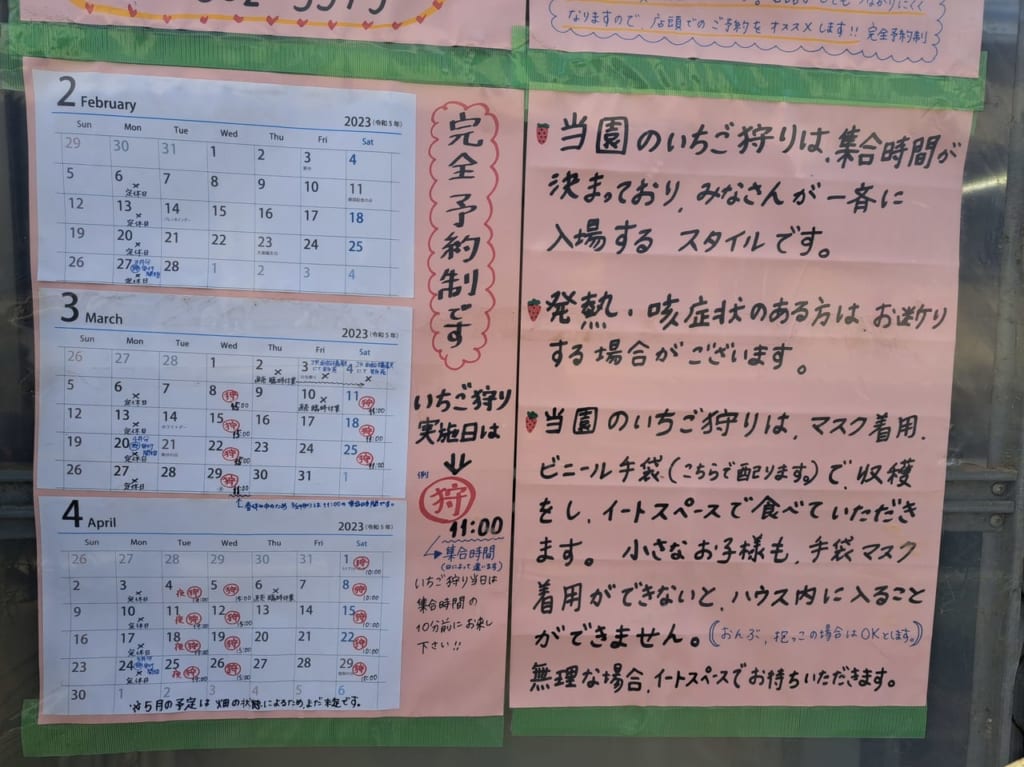 なりますので、店頭でのご予約をオススメします!! 完全予約制
2 February
2023(令和5年)
Sun Mon Tue Wed Thu Fri Sat
29 30 31 1 2 3 4
5 6 7 8 9 10 11
× 定休日
12 13 14 15 16 17 18
× 定休日
19 20 21 22 23 24 25
× 定休日
26 27 28 1 2 3 4
定休日
3 March
2023(令和5年)
Sun Mon Tue Wed Thu Fri Sat
26 27 28 1 2 3 4
× 臨時休業
5 6 7 8 9 10 11
× 定休日 狩 15:00 × 臨時休業 狩 11:00
12 13 14 15 16 17 18
× 定休日 ホワイトデー 狩 15:00 狩 11:00
19 20 21 22 23 24 25
定休日 狩 15:00 狩 11:00
26 27 28 29 30 31 1
× 定休日 狩 11:00
4 April
2023(令和5年)
Sun Mon Tue Wed Thu Fri Sat
26 27 28 29 30 31 1
狩 10:00
2 3 4 5 6 7 8
× 定休日 夜 狩 狩 15:00 × 臨時休業 狩 10:00
9 10 11 12 13 14 15
× 定休日 夜 狩 狩 15:00 狩 10:00
16 17 18 19 20 21 22
× 定休日 夜 狩 狩 15:00 狩 10:00
23 24 25 26 27 28 29
定休日 夜 狩 狩 15:00 狩 10:00
30 1 2 3 4 5 6
※5月の予定は 畑の状態によるため、まだ未定です。
完全予約制です
いちご狩り
実施日は
↓
例
狩
11:00
集合時間
(日によって違います)
いちご狩り当日は
集合時間の
10分前にお越し
下さい!!
当園のいちご狩りは、集合時間が
決まっており、みなさんが一斉に
入場する スタイルです。
発熱・咳症状のある方は、お断り
する場合がございます。
当園のいちご狩りは、マスク着用、
ビニール手袋(こちらで配ります。)で、収穫
をし、イートスペースで食べていただき
ます。 小さなお子様も、手袋マスク
着用ができないと、ハウス内に入ること
ができません。(おんぶ、抱っこの場合はOKとします。)
無理な場合、イートスペースでお待ちいただきます。